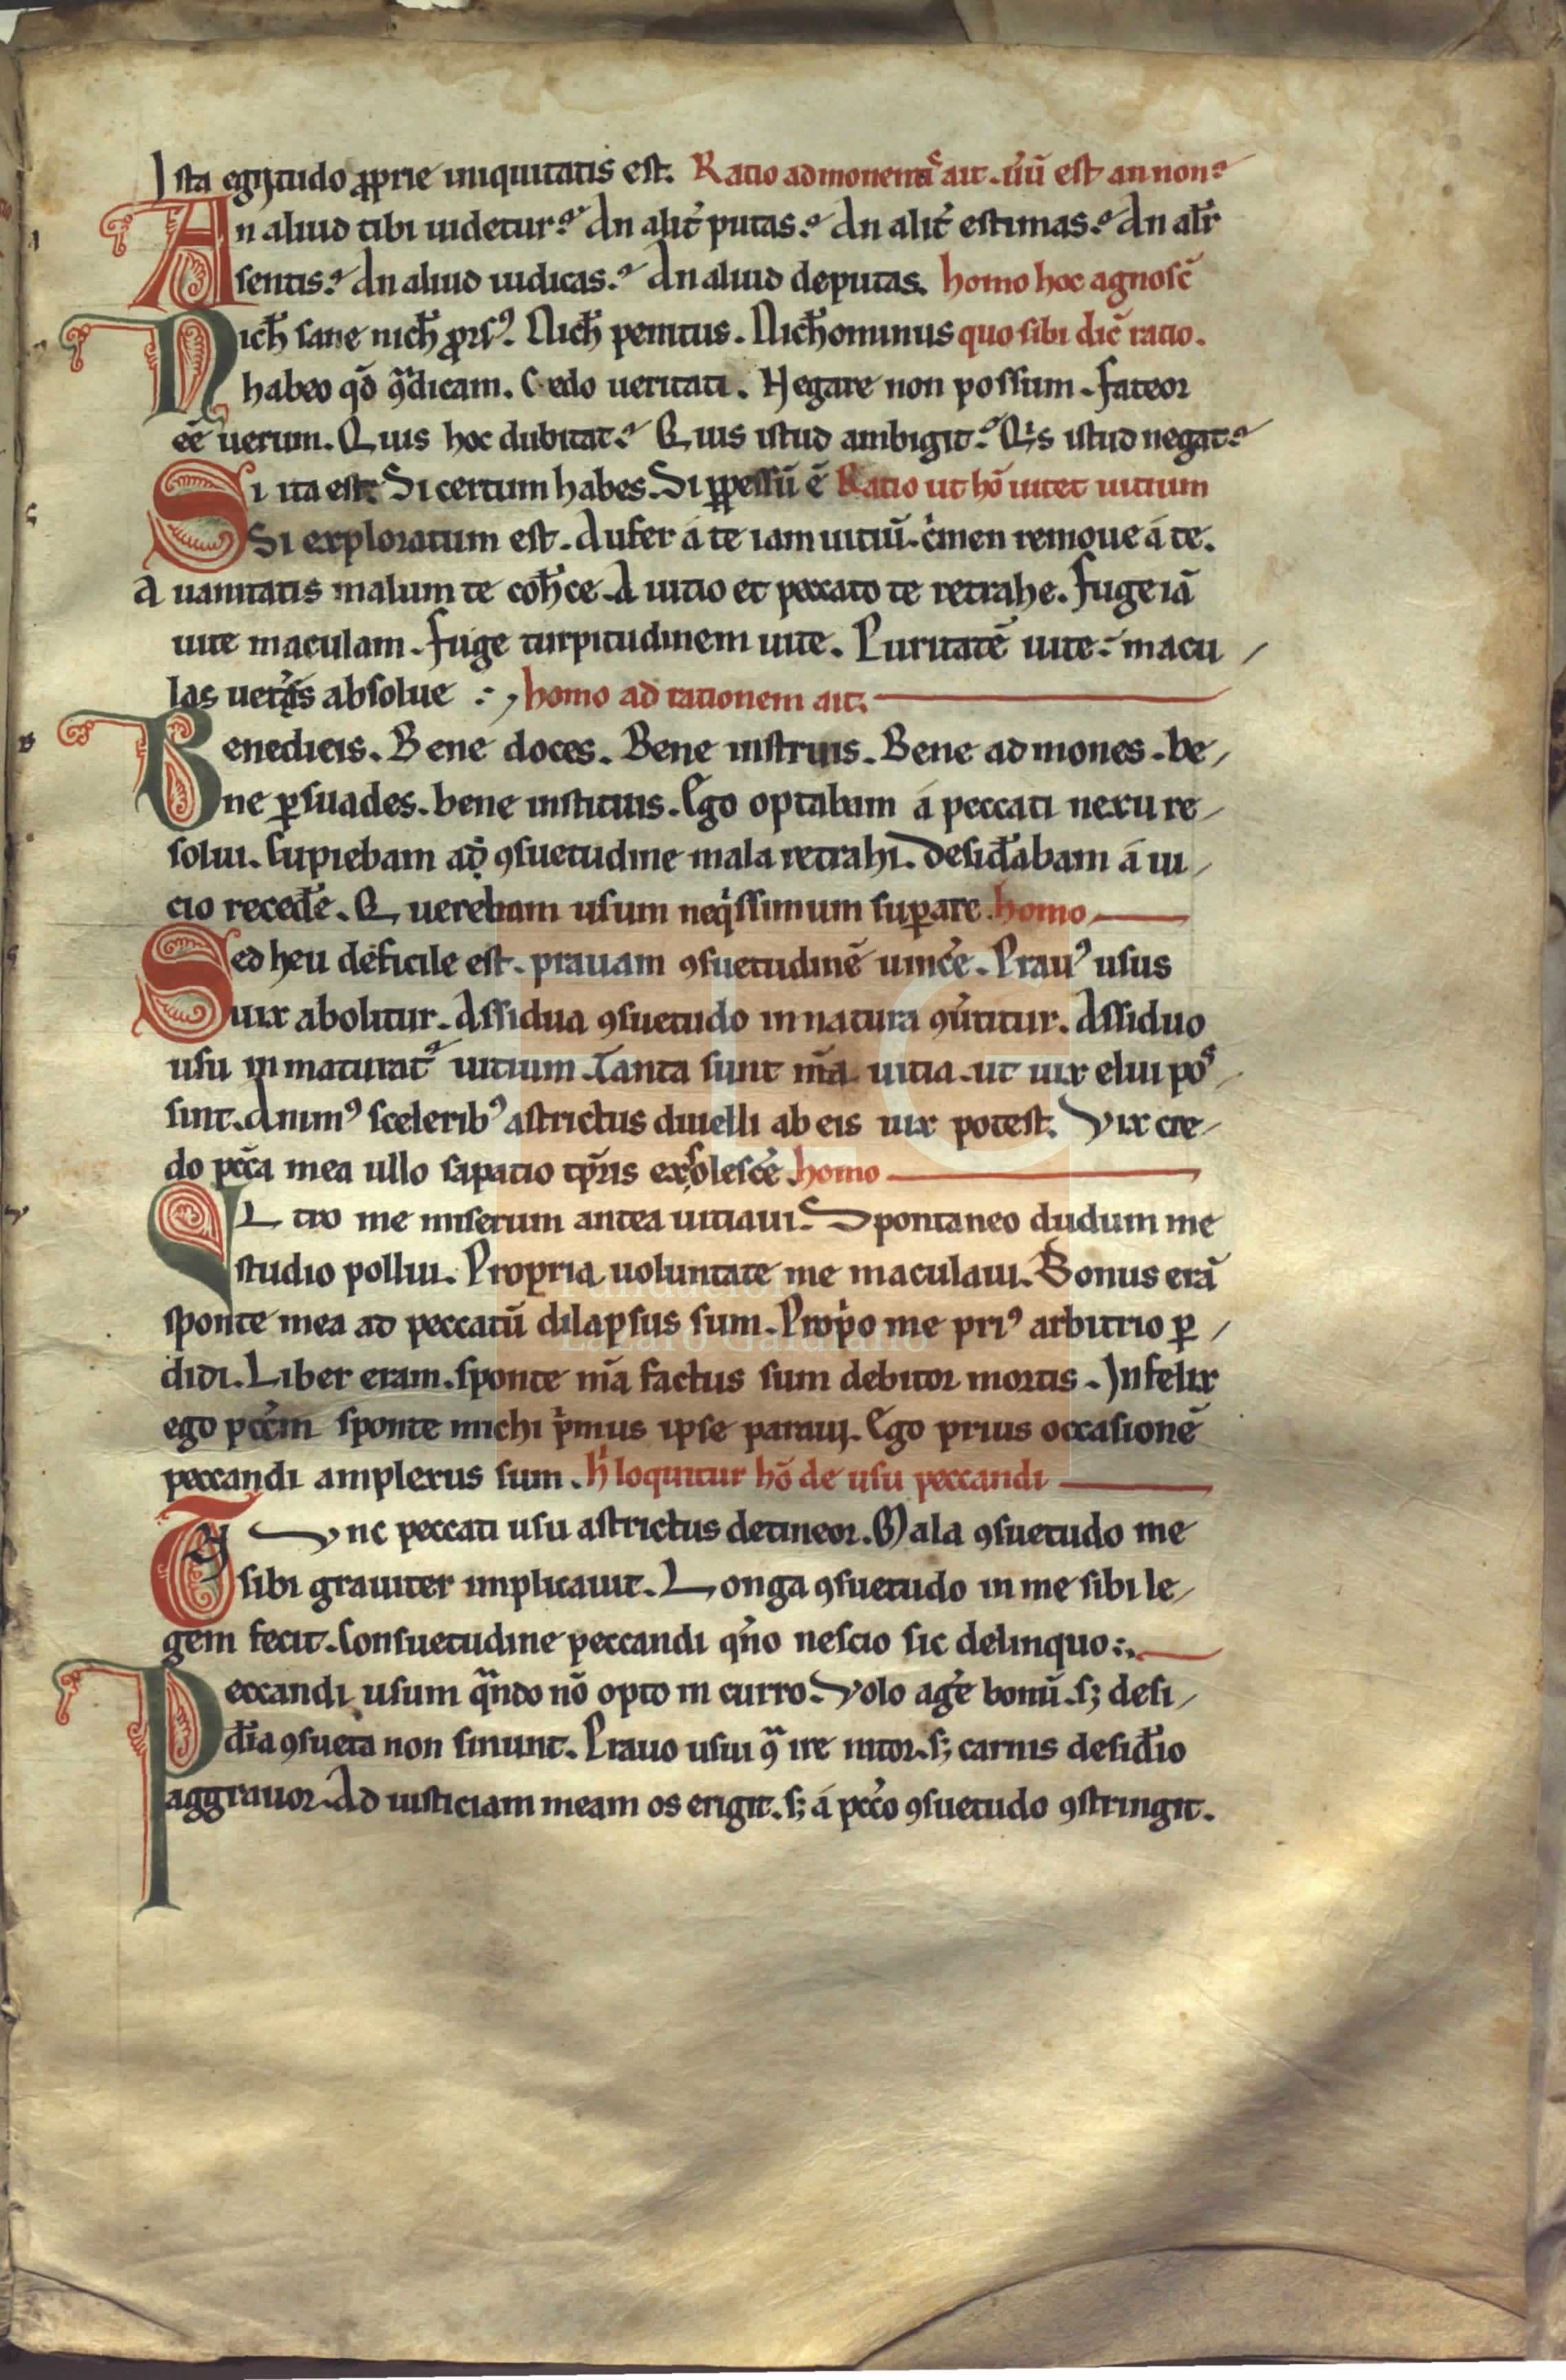 Ista egritudo ꝓprie iniquitatis est. Ratio admonens ait. uerũ est an non?
An aliud tibi uidetur? An alit̉ putas? An alit̉ estimas? An alit̉
sentis? An aliud iudicas? An aliud deputas. homo hoc agnosc̃
Nich̄ sane nich̄ ꝓrsꝰ. Nich̄ penitus. Nich̄ominus quo sibi dic̃ ratio.
habeo qđ ꝯͣdicam. Cedo ueritati. Negare non possum. fateor
eẽ uerum. Quis hoc dubitat? Quis istud ambigit? Qͥs istud negat?
Si ita est. Si certum habes. Si ꝑspessũ ẽ Ratio ut hõ uitet uitium
Si exploratum est. Aufer á te iam uitiũ. cͥmen remoue á te.
A uanitatis malum te coh̄ce. A uitio et peccato te retrahe. fuge iã
uite maculam. fuge turpitudinem uite. Puritatẽ uite: macu
las uetͣs absolue homo ad rationem ait.
Benedicis. Bene doces. Bene instruis. Bene admones. be
ne ꝑsuades. bene instituis. Ego optabam á peccati nexu re
solui. Cupiebam ad ꝯsuetudine mala retrahi. desiđabam á ui
cio receđe. Querebam usum neqͥssimum suꝑare. homo
Sed heu deficile est. prauam ꝯsuetudinẽ uinc̉e. Prauꝰ usus
uix abolitur. Assidua ꝯsuetudo in natura ꝯủtitur. Assiduo
usu in maturat̉ uitium. Tanta sunt m̃a uitia. ut uix elui pos
sint. Animꝰ sceleribꝰ astrictus diuelli ab eis uix potest. Vix cre
do pc̃ca mea ullo sapatio tp̃ris exolesc̉e. homo
VLtro me miserum antea uitiaui. Spontaneo dudum me
studio pollui. Propria uoluntate me maculaui. Bonus erã
sponte mea ad peccatũ dilapsus sum. Propͥo me priꝰ arbitrio ꝑ
didi. Liber eram. sponte m̃a factus sum debitor mortis. Infelix
ego pcc̃m sponte michi pͥmus ipse paraui. Ego prius occasionẽ
peccandi amplexus sum. hͥ loquitur hõ de usu peccandi
Tunc peccati usu astrictus detineor. Mala ꝯsuetudo me
sibi grauiter implicauit. Longa ꝯsuetudo in me sibi le
gem fecit. Consuetudine peccandi qͥno nescio sic delinquo
Peccandi usum qͣndo nõ opto in curro. Volo ag̉e bonũ. sꝫ desi
đia ꝯsueta non sinunt. Prauo usui ꝯͣ ire nitor. sꝫ carnis desiđio
aggrauor. Ad iusticiam meam os erigit. sꝫ á pcc̃o ꝯsuetudo ꝯstringit.
FLG
Fundación
Lázaro Galdiano